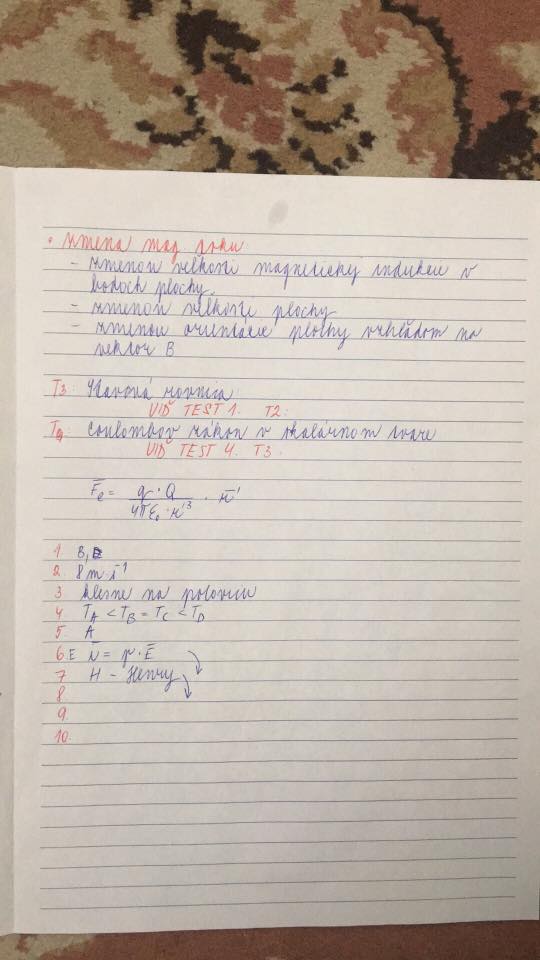 • zmena mag. toku:
- zmenou veľkosti magnetickej indukcie v
bodoch plochy.
- zmenou veľkosti plochy
- zmenou orientácie plochy vzhľadom na
vektor B
T3 Stavová rovnica
VIĎ TEST 1. T2:
Coulombov zákon v skalárnom tvare
VIĎ TEST 4. T3.
F̄e = q·Q / 4πε₀·r³ · r̄
1. B,
2. 8 m s⁻¹
3 klesne na polovicu
4 TA < TB = TC < TD
5. A
6. E = p·Ē
7 H - Henry
8
9.
10.